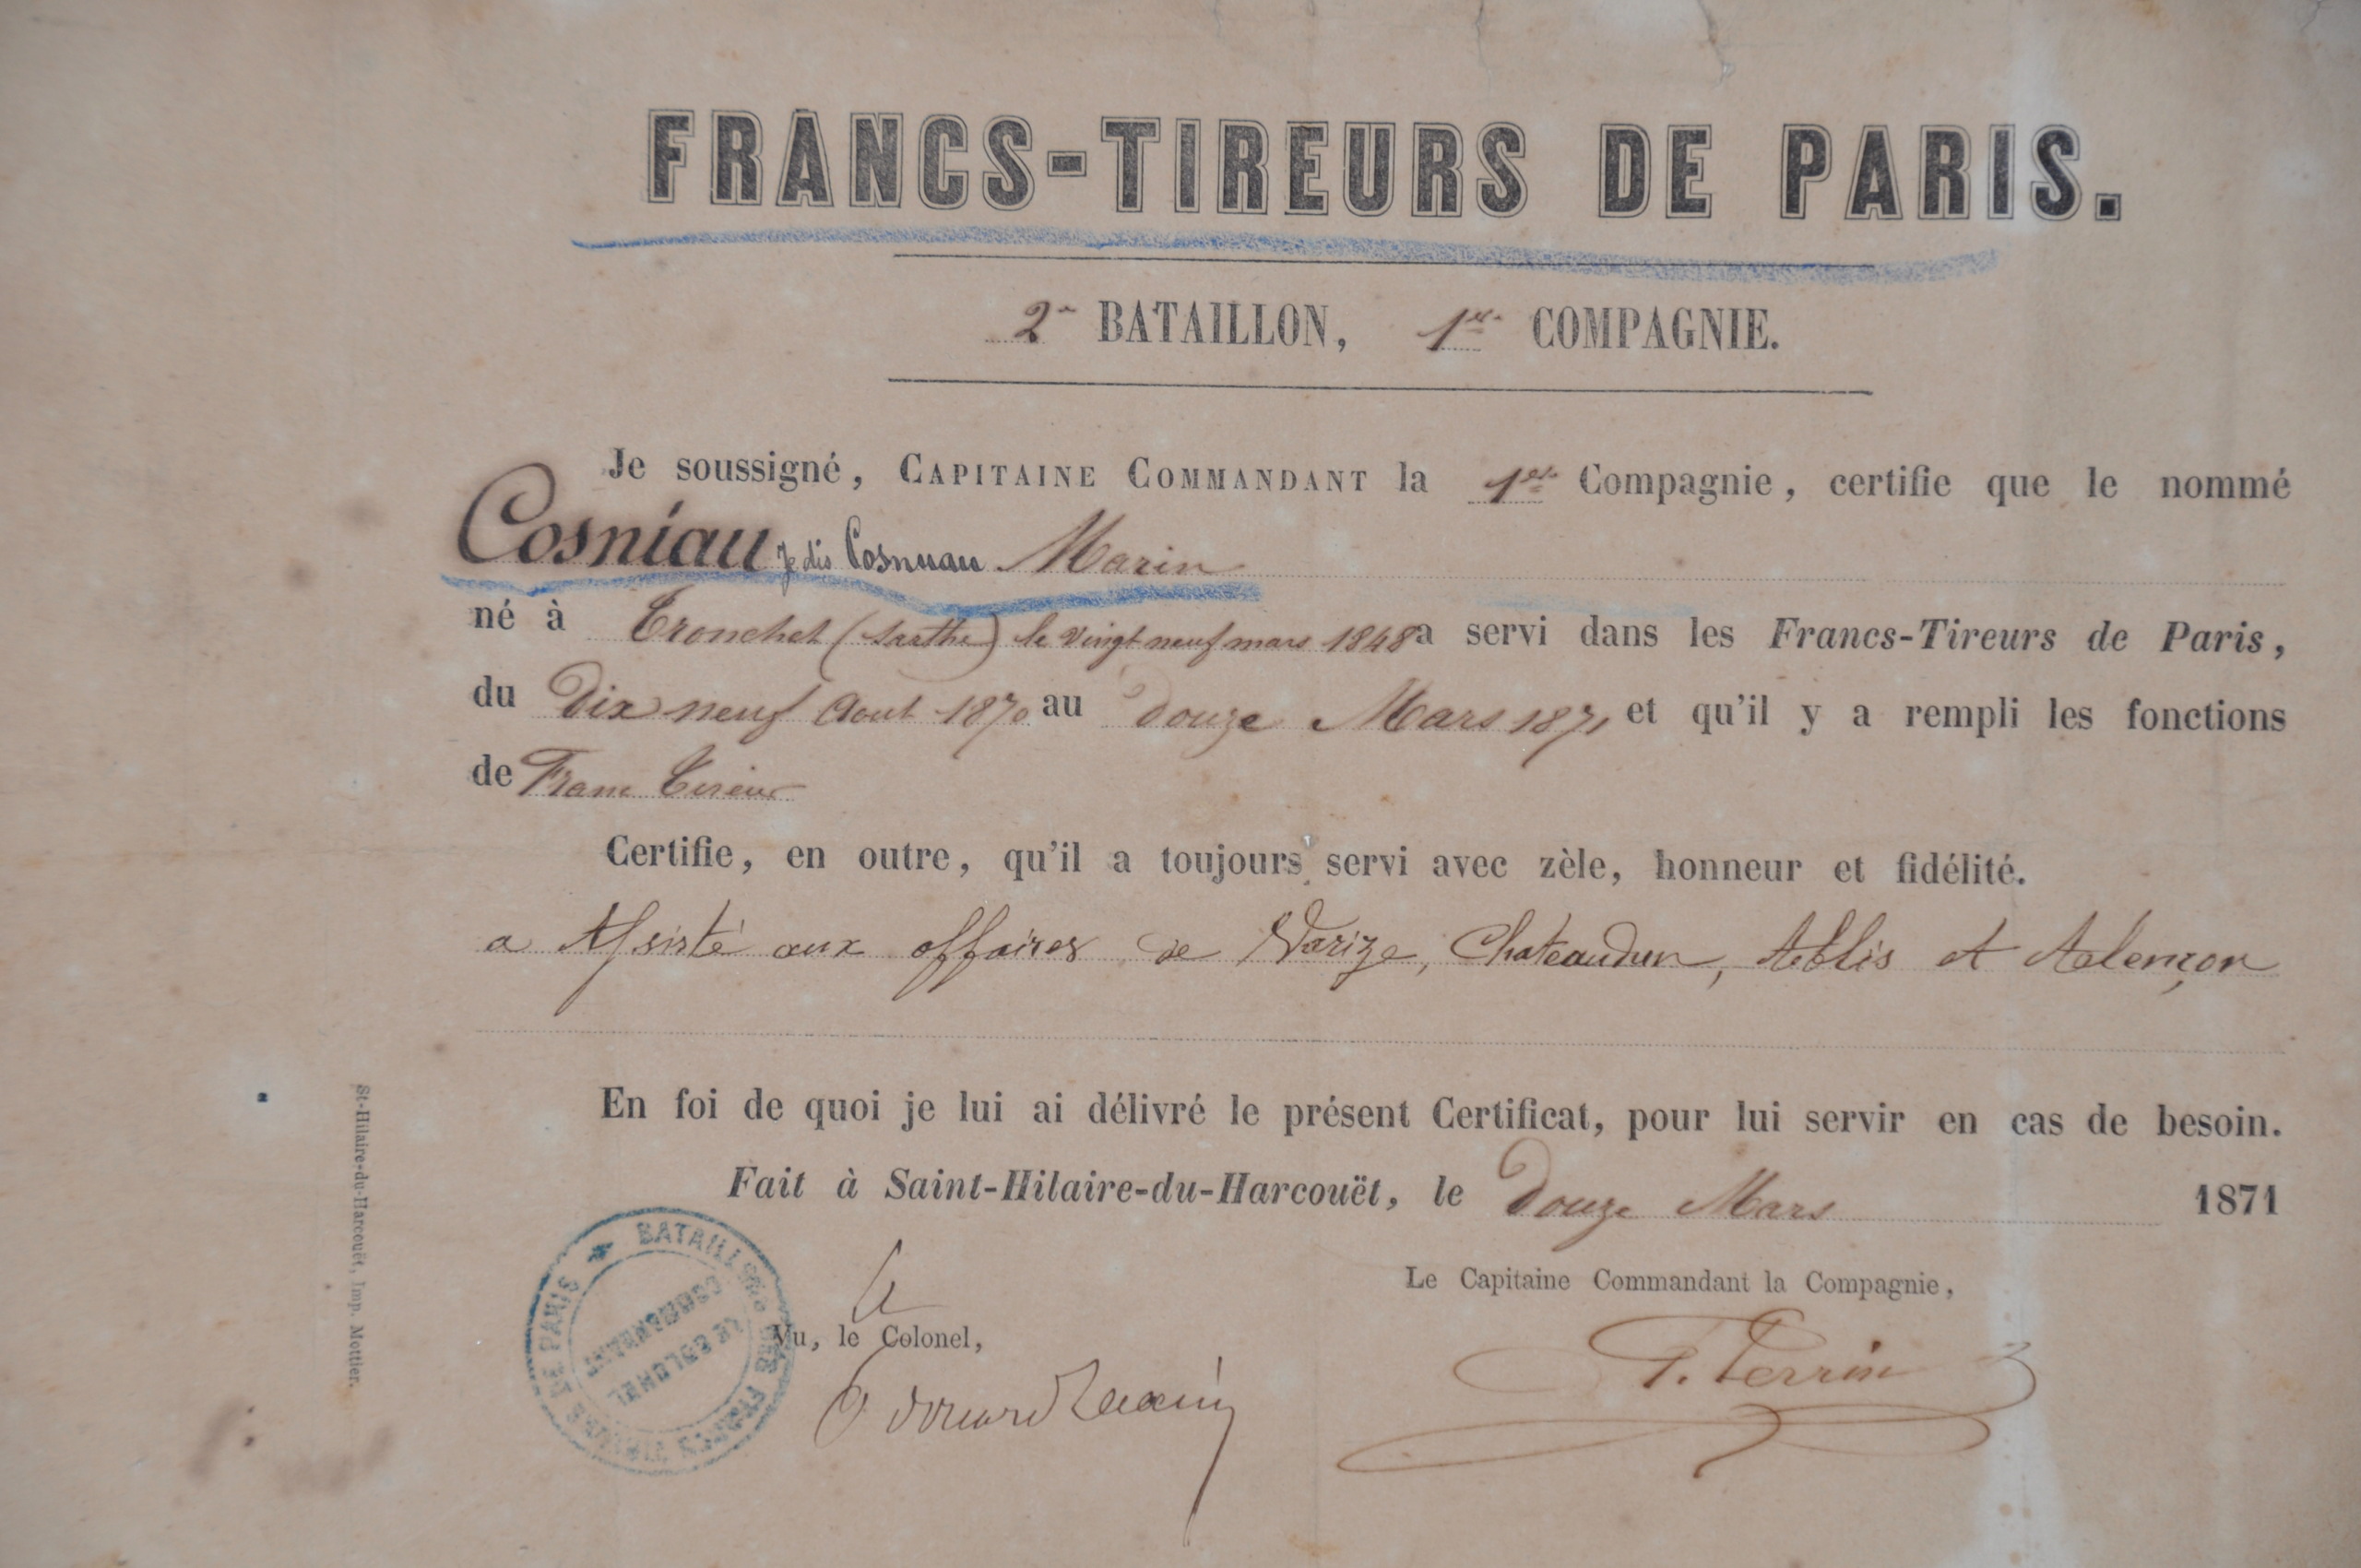 FRANCS-TIREURS DE PARIS.
2e BATAILLON, 1ere COMPAGNIE.
Je soussigné, CAPITAINE COMMANDANT la 1ere Compagnie, certifie que le nommé
Cosniau je dis Cosnuau Marin
né à Tronchet (Sarthe) le vingt neuf mars 1848 a servi dans les Francs-Tireurs de Paris,
du Dix neuf Aout 1870 au Douze Mars 1871 et qu'il y a rempli les fonctions
de Franc Tireur
Certifie, en outre, qu'il a toujours servi avec zèle, honneur et fidélité.
a Assisté aux affaires de Varize, Chateaudun, Ablis et Alençon
En foi de quoi je lui ai délivré le présent Certificat, pour lui servir en cas de besoin.
Fait à Saint-Hilaire-du-Harcouët, le Douze Mars 1871
Le Capitaine Commandant la Compagnie,
Vu, le Colonel,
P. Perrin
BATAILLONS DES FRANCS TIREURS DE PARIS
LE COLONEL
COMMANDANT
St-Hilaire-du-Harcouët, Imp. Mottier.